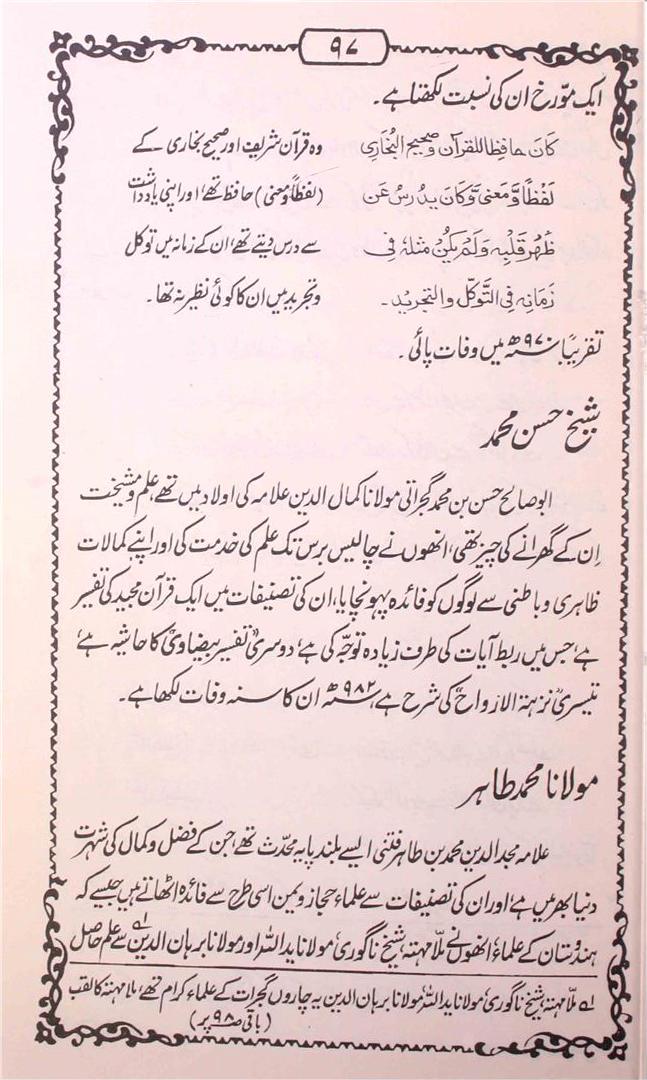 ۹۷
ایک مورخ ان کی نسبت لکھتا ہے۔
کَانَ حافظا للقرآن وصحیح البُخَارِی
لَفْظًا وَّمَعْنیً وَّکَانَ یدرسُ عَن
ظَھْرِ قَلْبِہٖ وَلَمْ یَکُنْ مثلہٗ فِی
زَمَانِہٖ فِی التَّوَکّلِ والتجرید۔
وہ قرآن شریف اور صحیح بخاری کے
(لفظاً و معنیً) حافظ تھے، اور اپنی یادداشت
سے درس دیتے تھے، ان کے زمانہ میں توکل
و تجرید میں ان کا کوئی نظیر نہ تھا۔
تقریباً ۹۷۰ھ میں وفات پائی۔
شیخ حسن محمد
ابو صالح حسن بن محمد گجراتی مولانا کمال الدین علامہ کی اولاد میں تھے، علم و مشیخت
اِن کے گھرانے کی چیز تھی، انھوں نے چالیس برس تک علم کی خدمت کی اور اپنے کمالات
ظاہری و باطنی سے لوگوں کو فائدہ پہونچایا، ان کی تصنیفات میں ایک قرآن مجید کی تفسیر
ہے، جس میں ربط آیات کی طرف زیادہ توجہ کی ہے، دوسری تفسیر بیضاوی کا حاشیہ ہے،
تیسری نزہۃ الارواح کی شرح ہے، ۹۸۲ھ ان کا سنہ وفات لکھا ہے۔
مولانا محمد طاہر
علامہ مجد الدین محمد بن طاہر فتنی ایسے بلند پایہ محدّث تھے، جن کے فضل و کمال کی شہرت
دنیا بھر میں ہے، اور ان کی تصنیفات سے علماء حجاز و یمن اسی طرح سے فائدہ اٹھاتے ہیں جیسے کہ
ہندوستان کے علماء، انھوں نے ملّا مہتہ، شیخ ناگوری، مولانا ید اللہ اور مولانا برہان الدین سے علم حاصل
لہ ملّا مہتہ، شیخ ناگوری، مولانا ید اللہ، مولانا برہان الدین یہ چاروں گجرات کے علماء کرام تھے، ملا مہتہ کا لقب
(باقی ص ۹۸ پر)